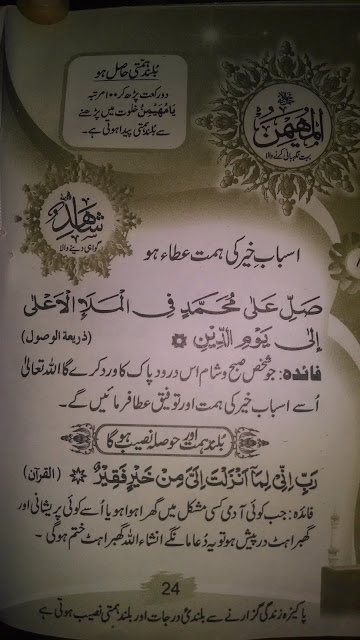 بُلند ہمّتی حاصل ہو
دو رکعت پڑھ کر ۱۰۰ مرتبہ
یَا مُھَیْمِنُ خلوت میں پڑھنے
سے بلند ہمّتی پیدا ہوتی ہے۔
المھیمن
بہت نگہبانی کرنے والا
شاھد
گواہی دینے والا
اسبابِ خیر کی ہمت عطاء ہو
صَلِّ عَلٰى مُحَمَّدٍ فِى الْمَلَاِ الْاَعْلٰى
اِلٰى يَوْمِ الدِّيْنِ (ذریعۃ الوصول)
فائدہ: جو شخص صبح و شام اس درود پاک کا ورد کرے گا اللہ تعالیٰ
اُسے اسباب خیر کی ہمت اور توفیق عطا فرمائیں گے۔
بلند ہمت اور حوصلہ نصیب ہو گا
رَبِّ اِنِّىْ لِمَآ اَنْزَلْتَ اِلَىَّ مِنْ خَيْرٍ فَقِيْرٌ (القرآن)
فائدہ: جب کوئی آدمی کسی مشکل میں گھرا ہوا ہو یا اُسے کوئی پریشانی اور
گھبراہٹ درپیش ہو تو یہ دُعا مانگے انشاء اللہ گھبراہٹ ختم ہوگی۔
24
پاکیزہ زندگی گزارنے سے بلندیٔ درجات اور بلند ہمتی نصیب ہوتی ہے